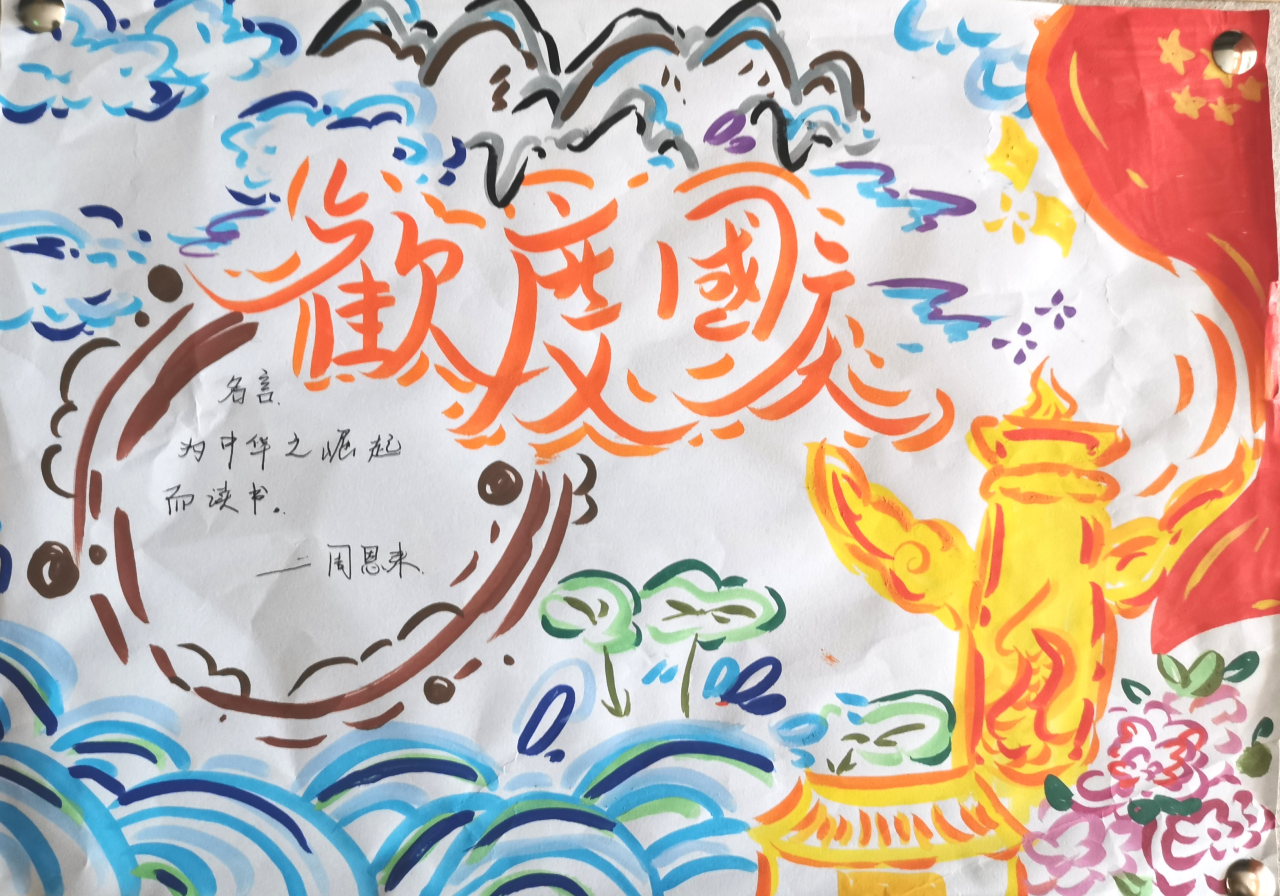 歡度國庆
名言
为中华之崛起
而读书。
——周恩来